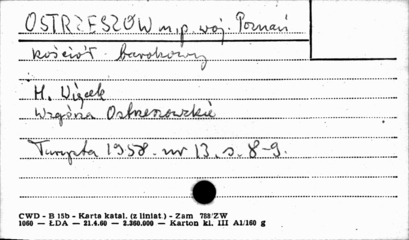 OSTRZESZÓW m.p. woj. Poznań
kościół barokowy
H. Więcek
Wzgórza Ostrzeszowskie
Turysta 1958. nr 13. s. 8-9.
CWD - B 15b - Karta katal. (z liniat.) - Zam 788/ZW
1060 — ŁDA — 21.4.60 — 2.360.000 — Karton kl. III A1/160 g